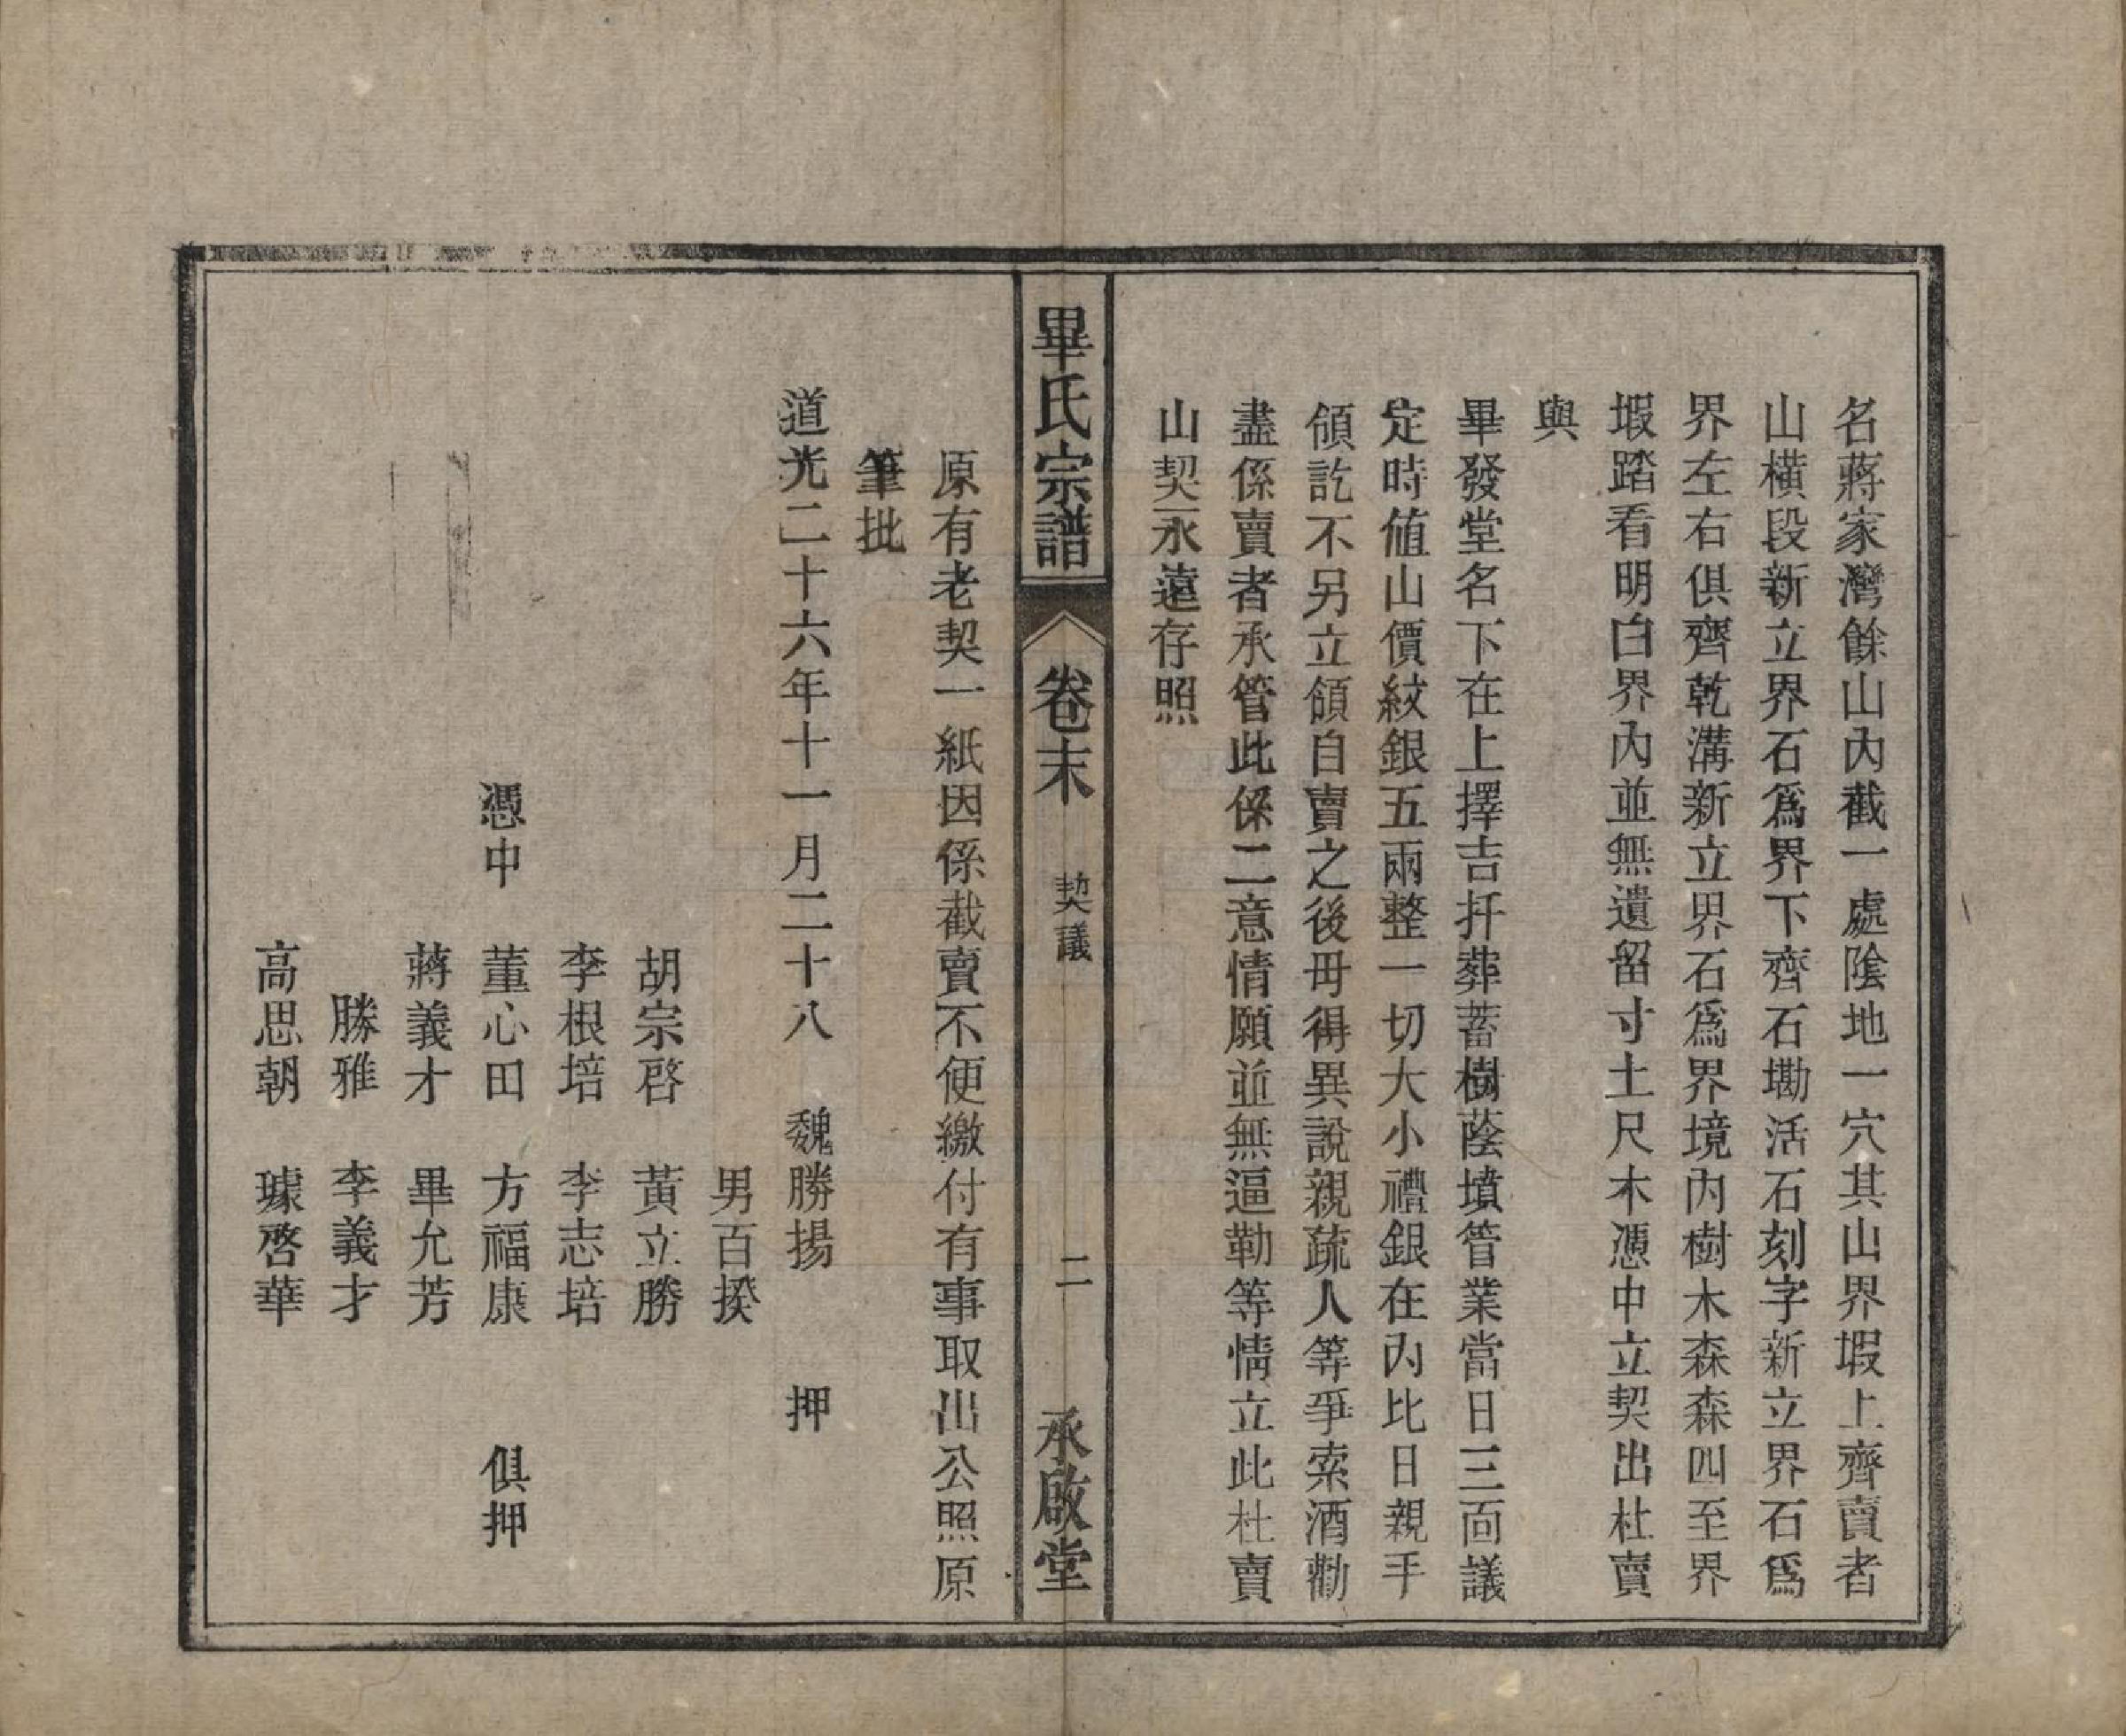 名蔣家灣餘山內截一處陰地一穴其山界塅上齊賣者
山橫段新立界石爲界下齊石墈活石刻字新立界石爲
界左右俱齊乾溝新立界石爲界境內樹木森森四至界
塅踏看明白界內並無遺留寸土尺木憑中立契出杜賣
與
畢發堂名下在上擇吉扦葬蓄樹蔭墳管業當日三面議
定時值山價紋銀五兩整一切大小禮銀在內比日親手
領訖不另立領自賣之後毋得異說親疏人等爭索酒勸
盡係賣者承管此係二意情願並無逼勒等情立此杜賣
山契永遠存照
畢氏宗譜 卷末 契議 二 承啟堂
原有老契一紙因係截賣不便繳付有事取出公照原
筆批
道光二十六年十一月二十八 魏勝揚 押
男百揆
胡宗啓 黃立勝
李根培 李志培
憑中 董心田 方福康 俱押
蔣義才 畢允芳
勝雅 李義才
高思朝 璩啓華